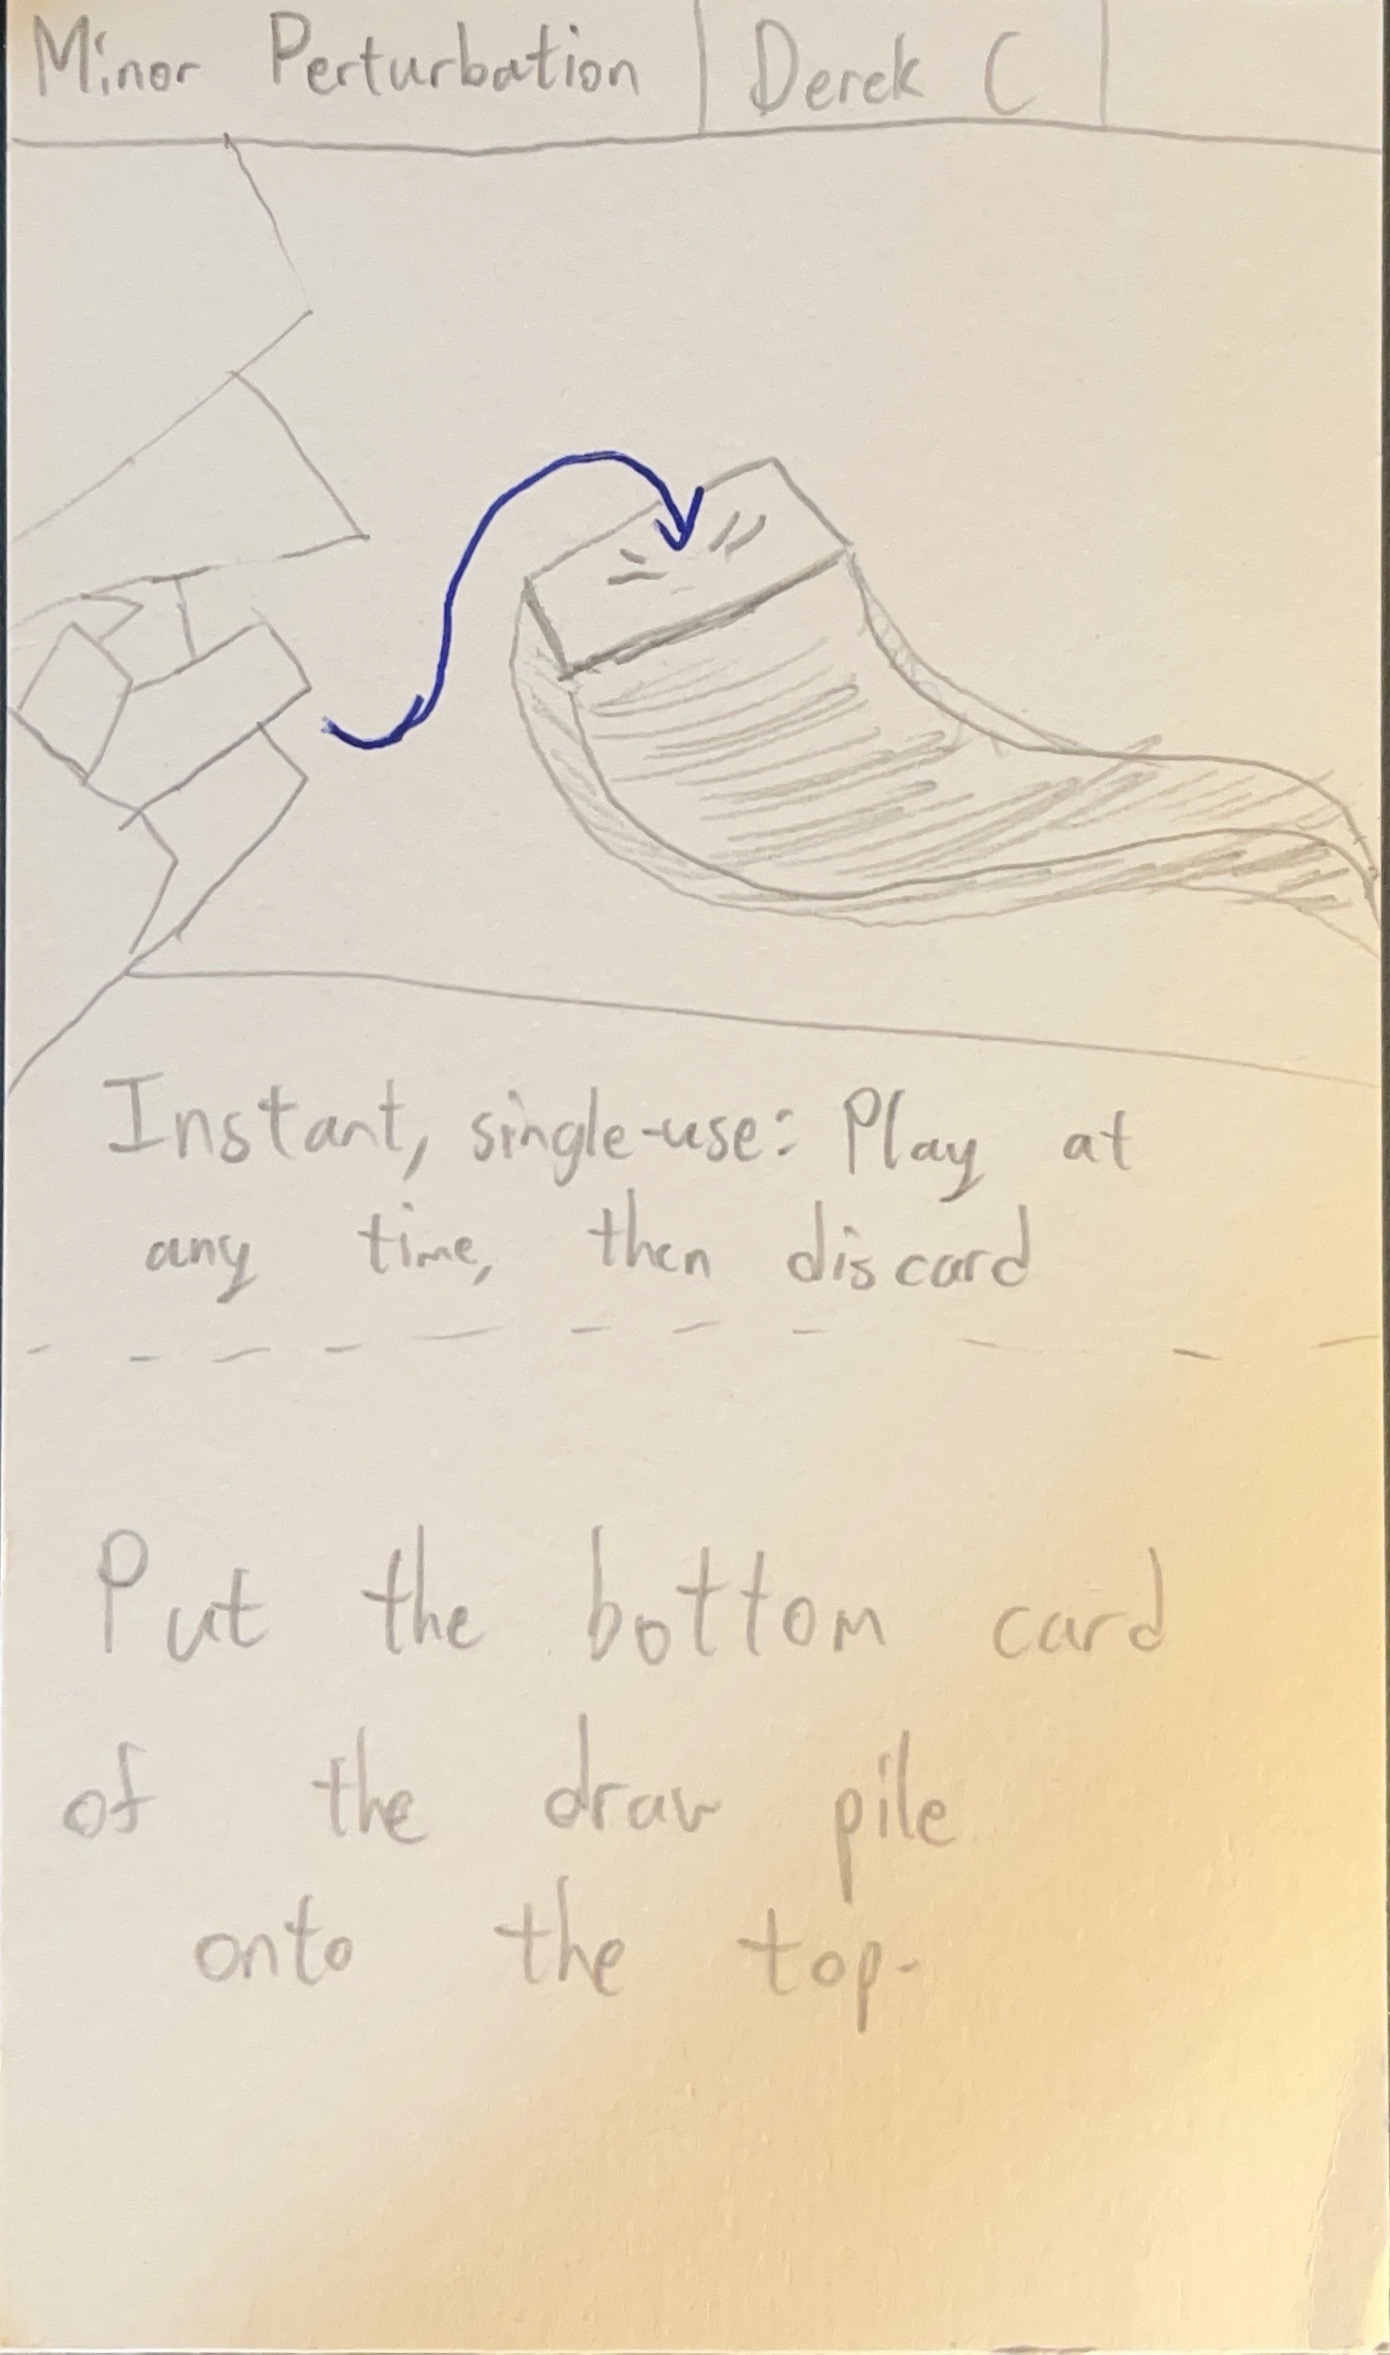 Minor Perturbation Derek C
Instant, single-use: Play at
any time, then discard
Put the bottom card
of the draw pile
onto the top.